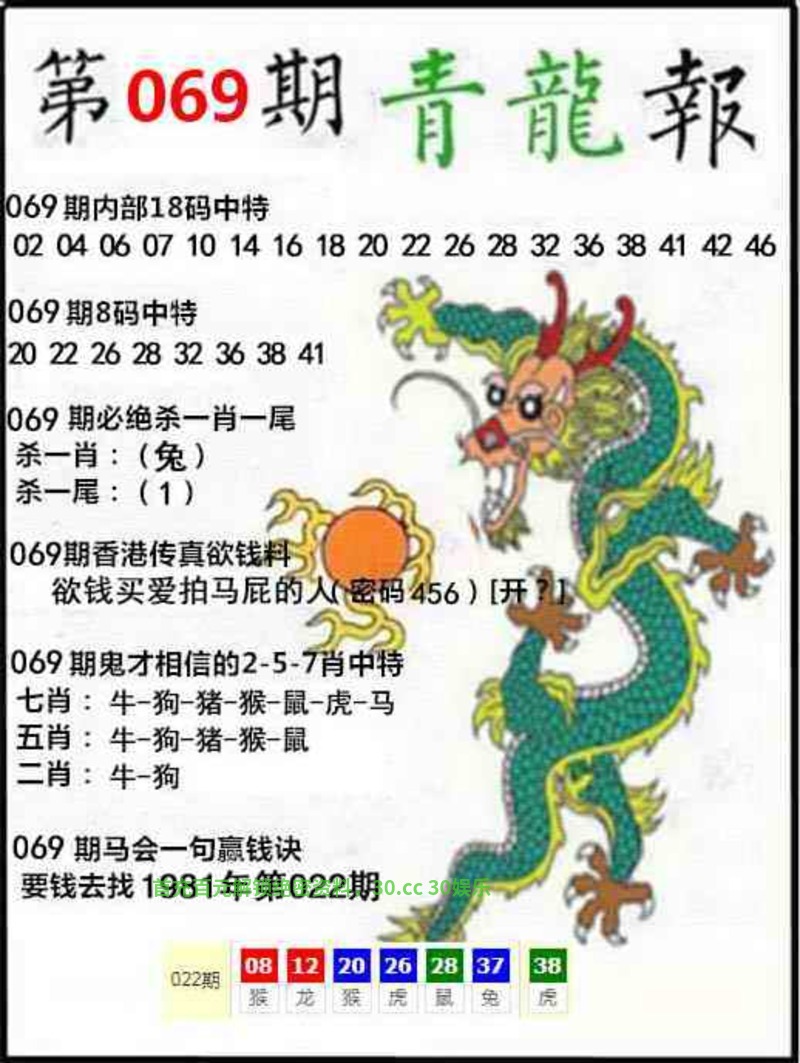 第069期青龍報
069期内部18码中特
02 04 06 07 10 14 16 18 20 22 26 28 32 36 38 41 42 46
069期8码中特
20 22 26 28 32 36 38 41
069 期必绝杀一肖一尾
杀一肖：（兔）
杀一尾：（1）
069期香港传真欲钱料
欲钱买爱拍马屁的人（密码456）[开？]
069期鬼才相信的2-5-7肖中特
七肖：牛-狗-猪-猴-鼠-虎-马
五肖：牛-狗-猪-猴-鼠
二肖：牛-狗
069 期马会一句赢钱诀
要钱去找198 年第022期
30.cc 30娱乐
022期 08 12 20 26 28 37 38
猴 龙 猴 虎 鼠 兔 虎